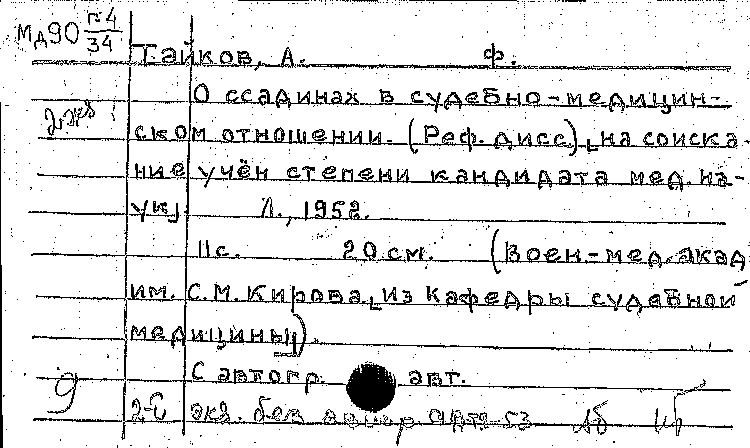 Мд90 Г-4/34
Тайков, А. Ф.
О ссадинах в судебно-медицин-
2 экз
ском отношении. (Реф. дисс.) на соиска-
ние учён степени кандидата мед. на-
ук). Л., 1952.
11с. 20 см. (Воен-мед. акад
им. С.М. Кирова, из кафедры судебной
медицины).
С автогр. авт.
9
2-й экз. без автогр